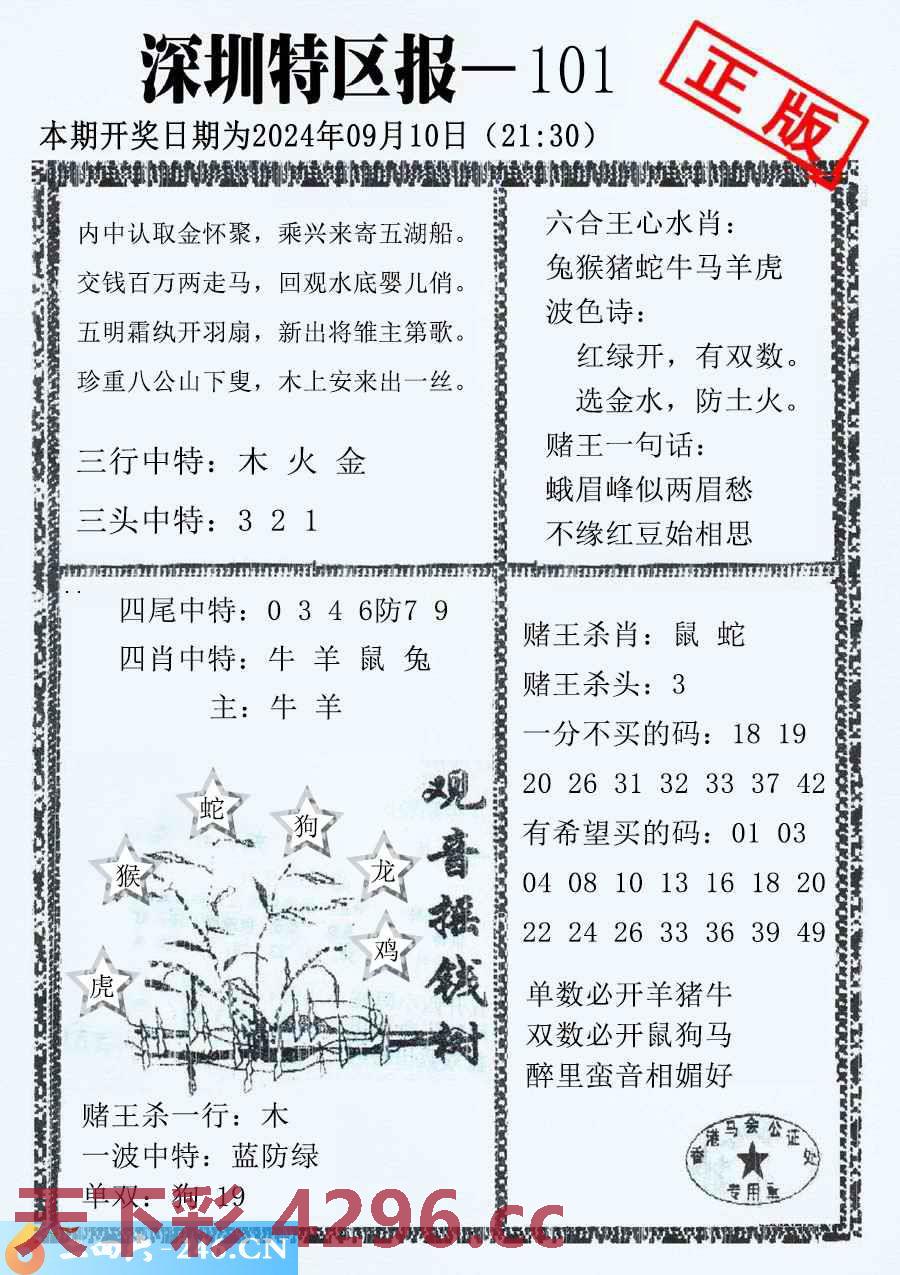 深圳特区报—101
正版
本期开奖日期为2024年09月10日（21:30）
内中认取金怀聚，乘兴来寄五湖船。
交钱百万两走马，回观水底婴儿俏。
五明霜纨开羽扇，新出将雏主第歌。
珍重八公山下叟，木上安来出一丝。
三行中特：木 火 金
三头中特：3 2 1
六合王心水肖：
兔猴猪蛇牛马羊虎
波色诗：
红绿开，有双数。
选金水，防土火。
赌王一句话：
蛾眉峰似两眉愁
不缘红豆始相思
四尾中特：0 3 4 6防7 9
四肖中特：牛 羊 鼠 兔
主：牛 羊
观音摇钱树
蛇
狗
猴
龙
鸡
虎
赌王杀一行：木
一波中特：蓝防绿
单双：狗 19
赌王杀肖：鼠 蛇
赌王杀头：3
一分不买的码：18 19
20 26 31 32 33 37 42
有希望买的码：01 03
04 08 10 13 16 18 20
22 24 26 33 36 39 49
单数必开羊猪牛
双数必开鼠狗马
醉里蛮音相媚好
香港马会公证处
专用章
天下彩 4296.cc
-246.CN